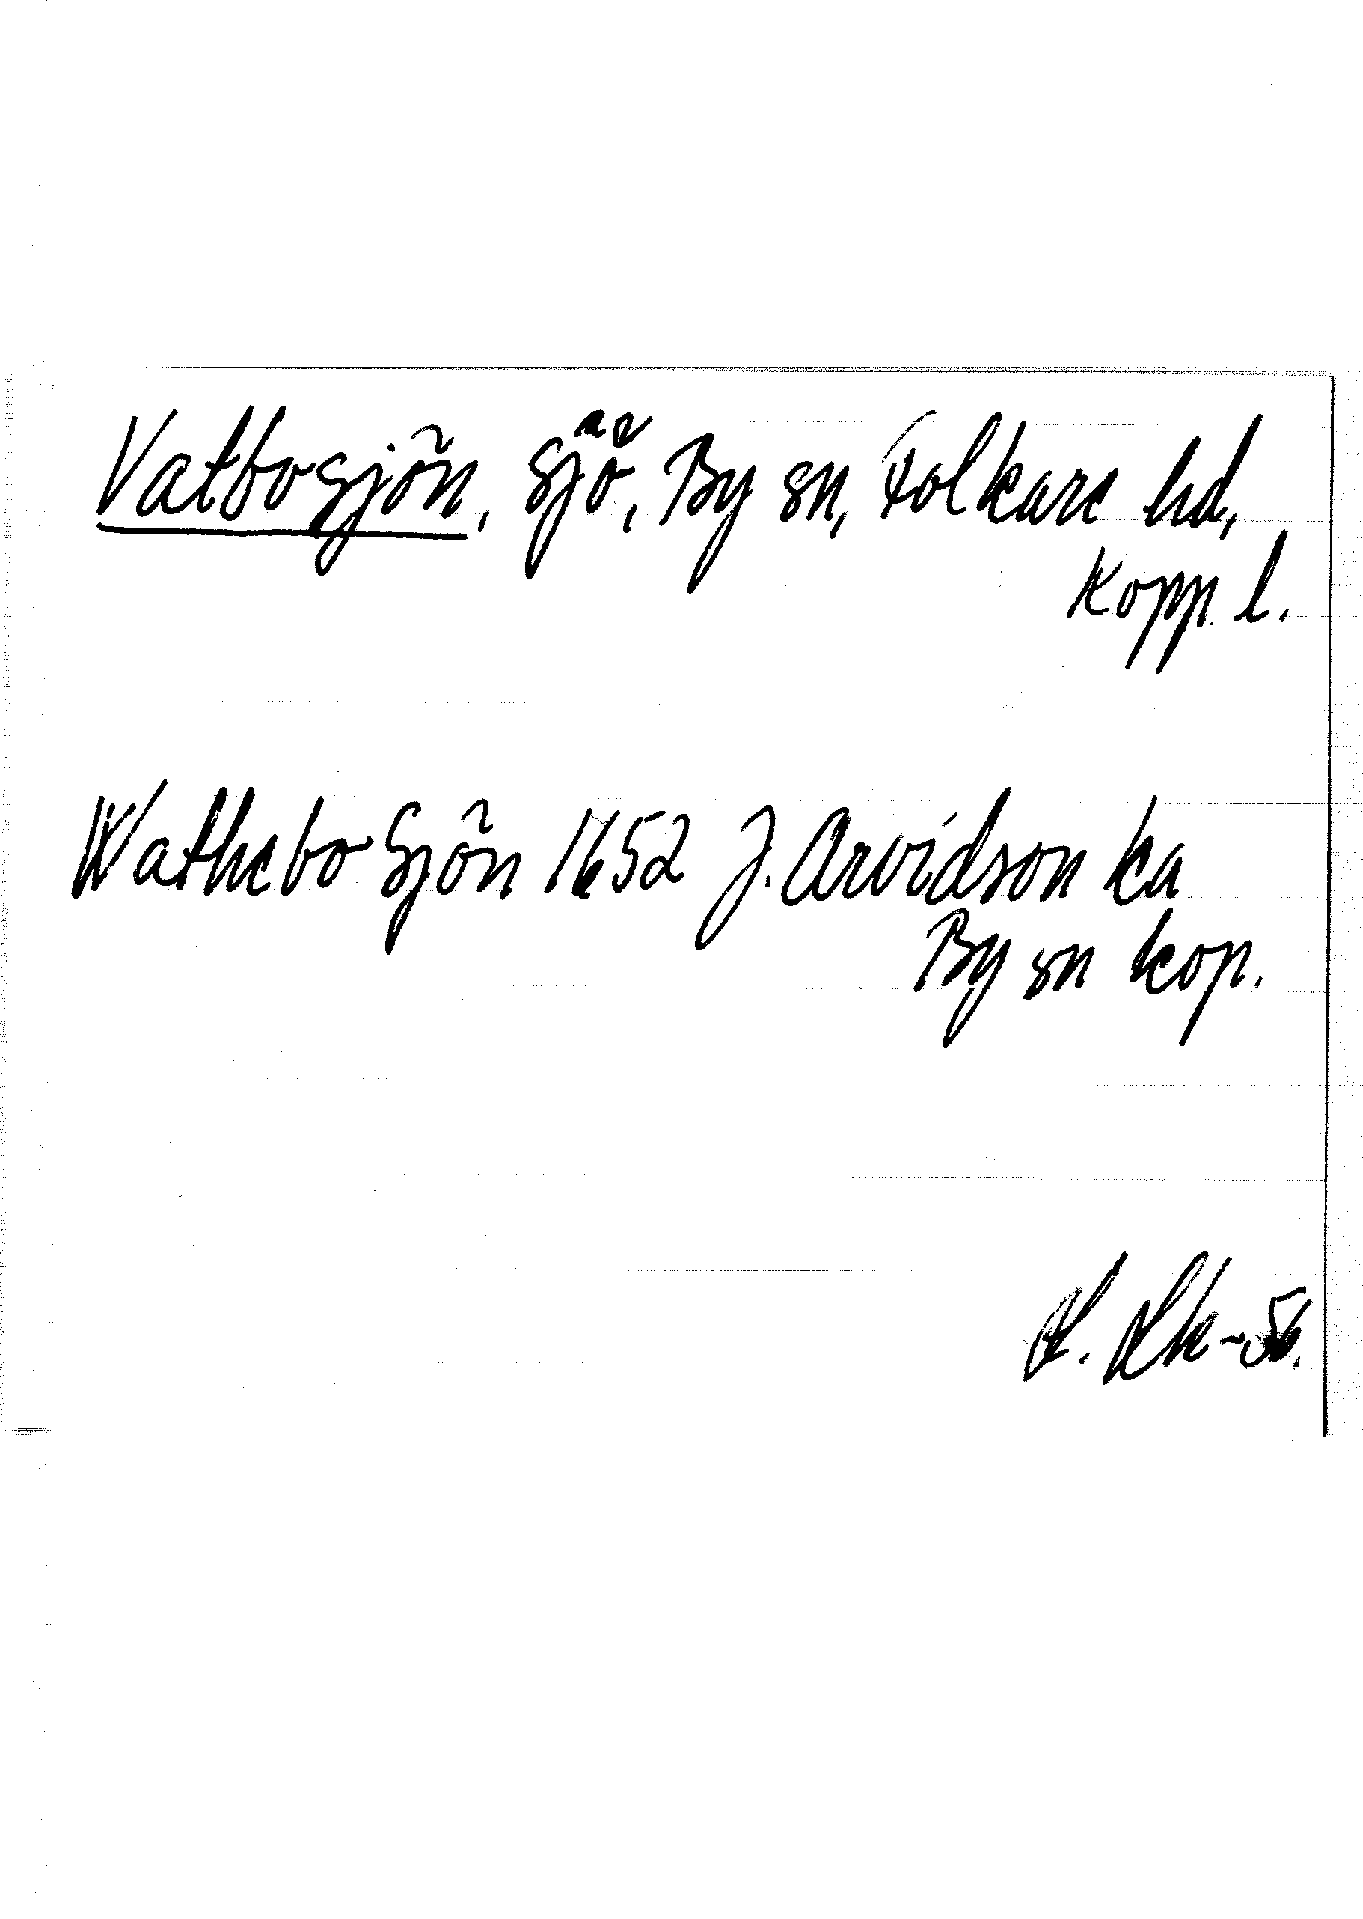 Vatbosjön, sjö, By sn, Folkare hd,
Kopp. l.
Wathebo Sjön 1652 J. Arvidson ka
By sn kop.
-56.